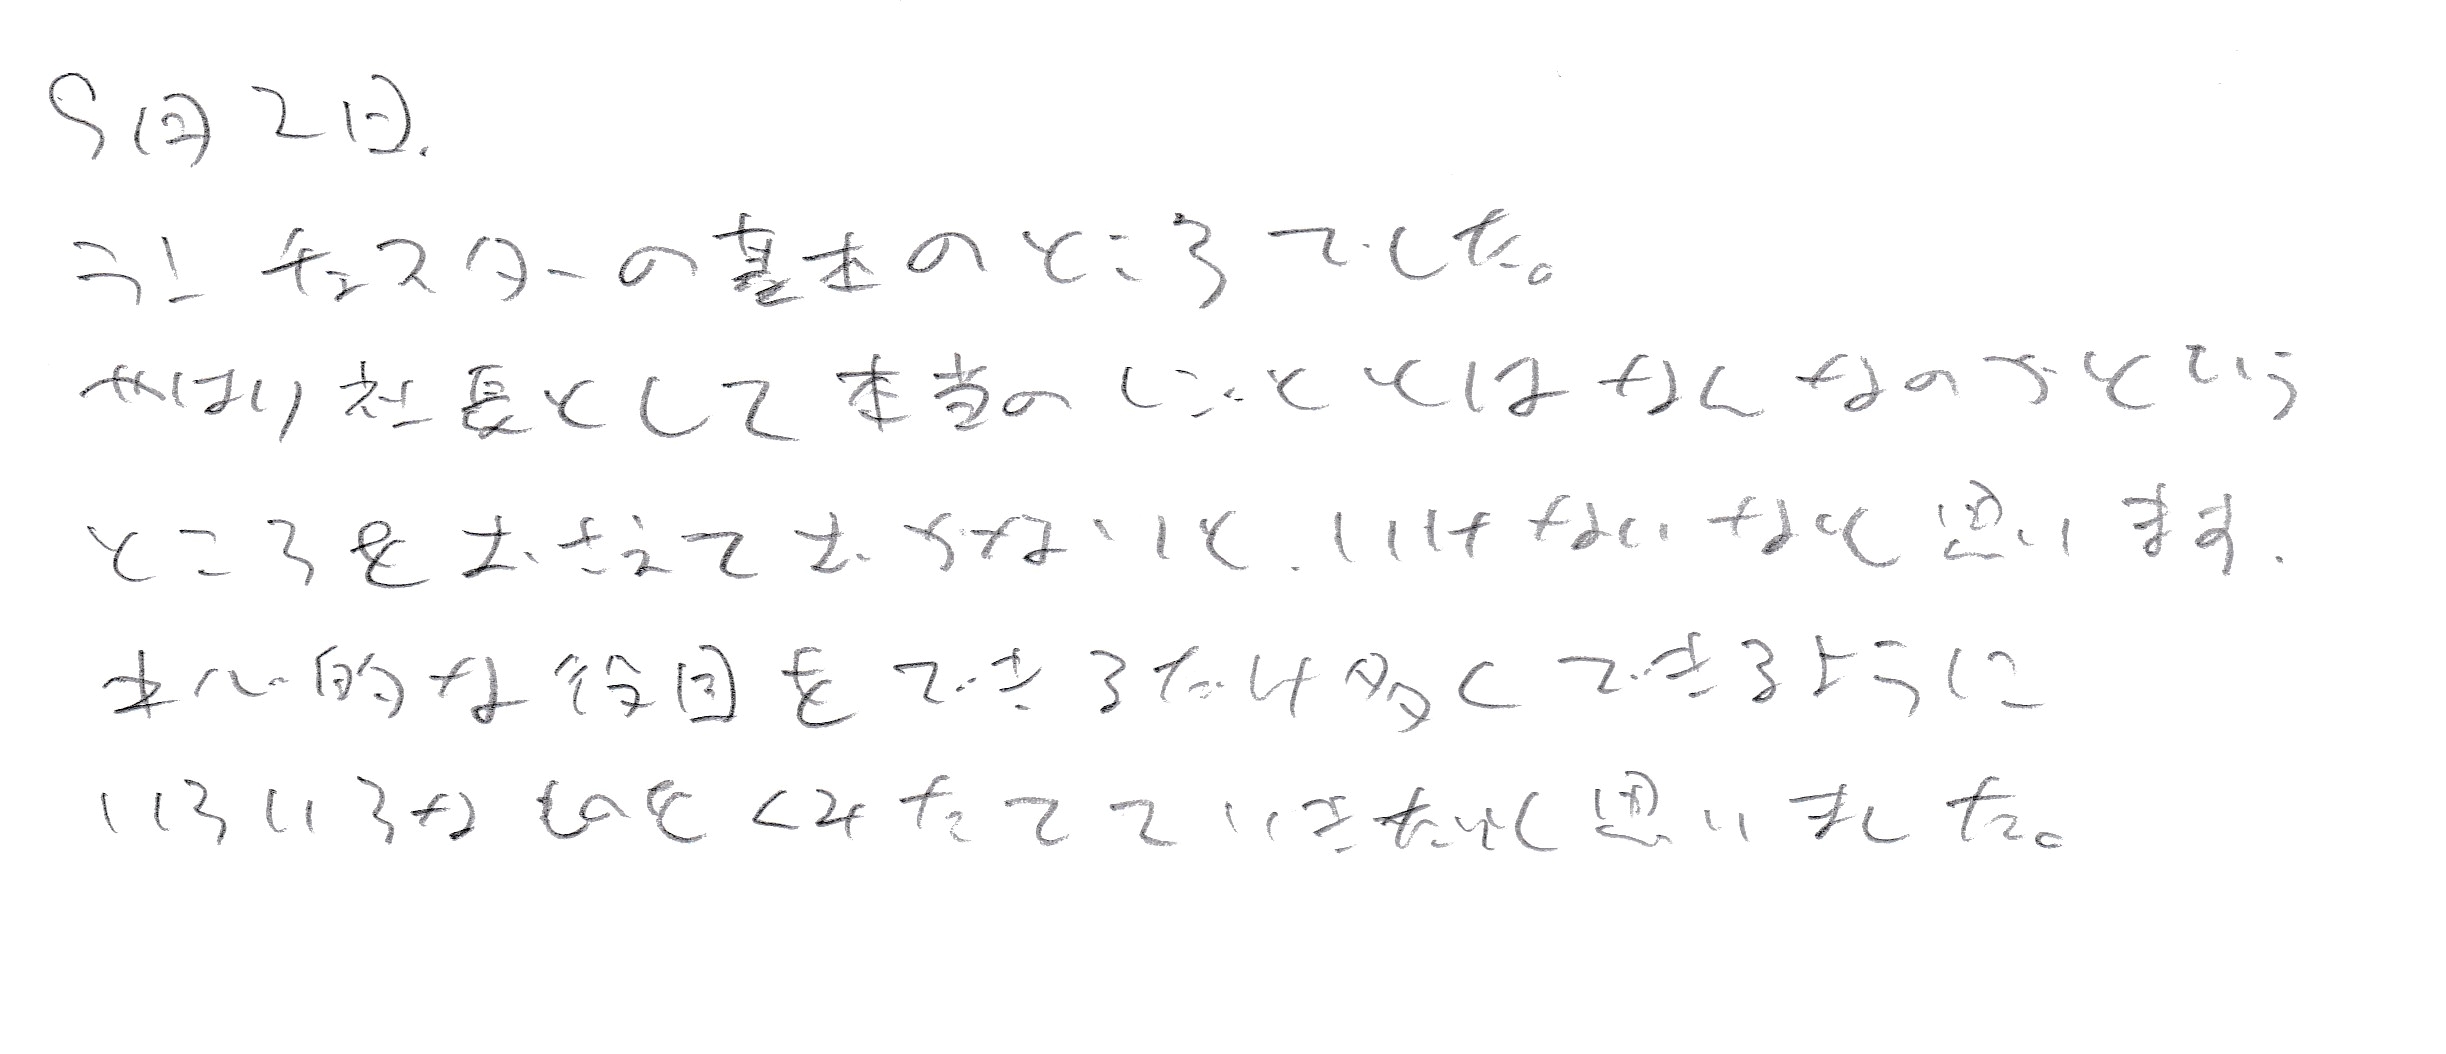 9月2日.
ランチェスターの基本のところでした。
やはり社長として本当のしごととはなんなのかという
ところをおさえておかないと、いけないなと思います.
本心的な役目をできるだけ多くできるように
いろいろなものをくみたてていきたいと思いました。